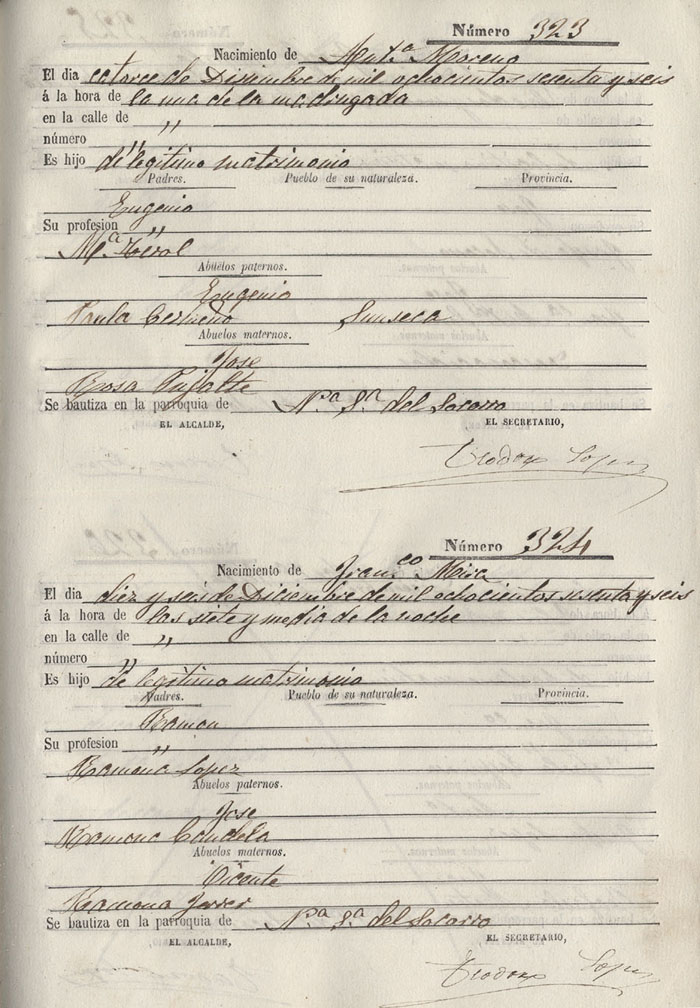 Número 323
Nacimiento de Ant.ª Moreno
El dia catorce de Disiembre de mil ochocientos sesenta y seis
á la hora de la una de la madrugada
en la calle de "
número "
Es hijo de legitimo matrimonio
Padres. Pueblo de su naturaleza. Provincia.
Eugenio
Su profesion "
Mª
Abuelos paternos.
Eugenio
Paula
Abuelos maternos.
Jose
Rosa Pujalte
Se bautiza en la parroquia de Nª Sª del Socorro
EL ALCALDE, EL SECRETARIO,
Teodoro Lopez
Número 324
Nacimiento de Franco Mira
El dia diez y seis de Diciembre de mil ochocientos sesenta y seis
á la hora de las siete y media de la noche
en la calle de "
número "
Es hijo de legitimo matrimonio
Padres. Pueblo de su naturaleza. Provincia.
Ramon
Su profesion "
Ramona Lopez
Abuelos paternos.
Jose
Ramona Candela
Abuelos maternos.
Vicente
Ramona Ferrer
Se bautiza en la parroquia de Nª Sª del Socorro
EL ALCALDE, EL SECRETARIO,
Teodoro Lopez